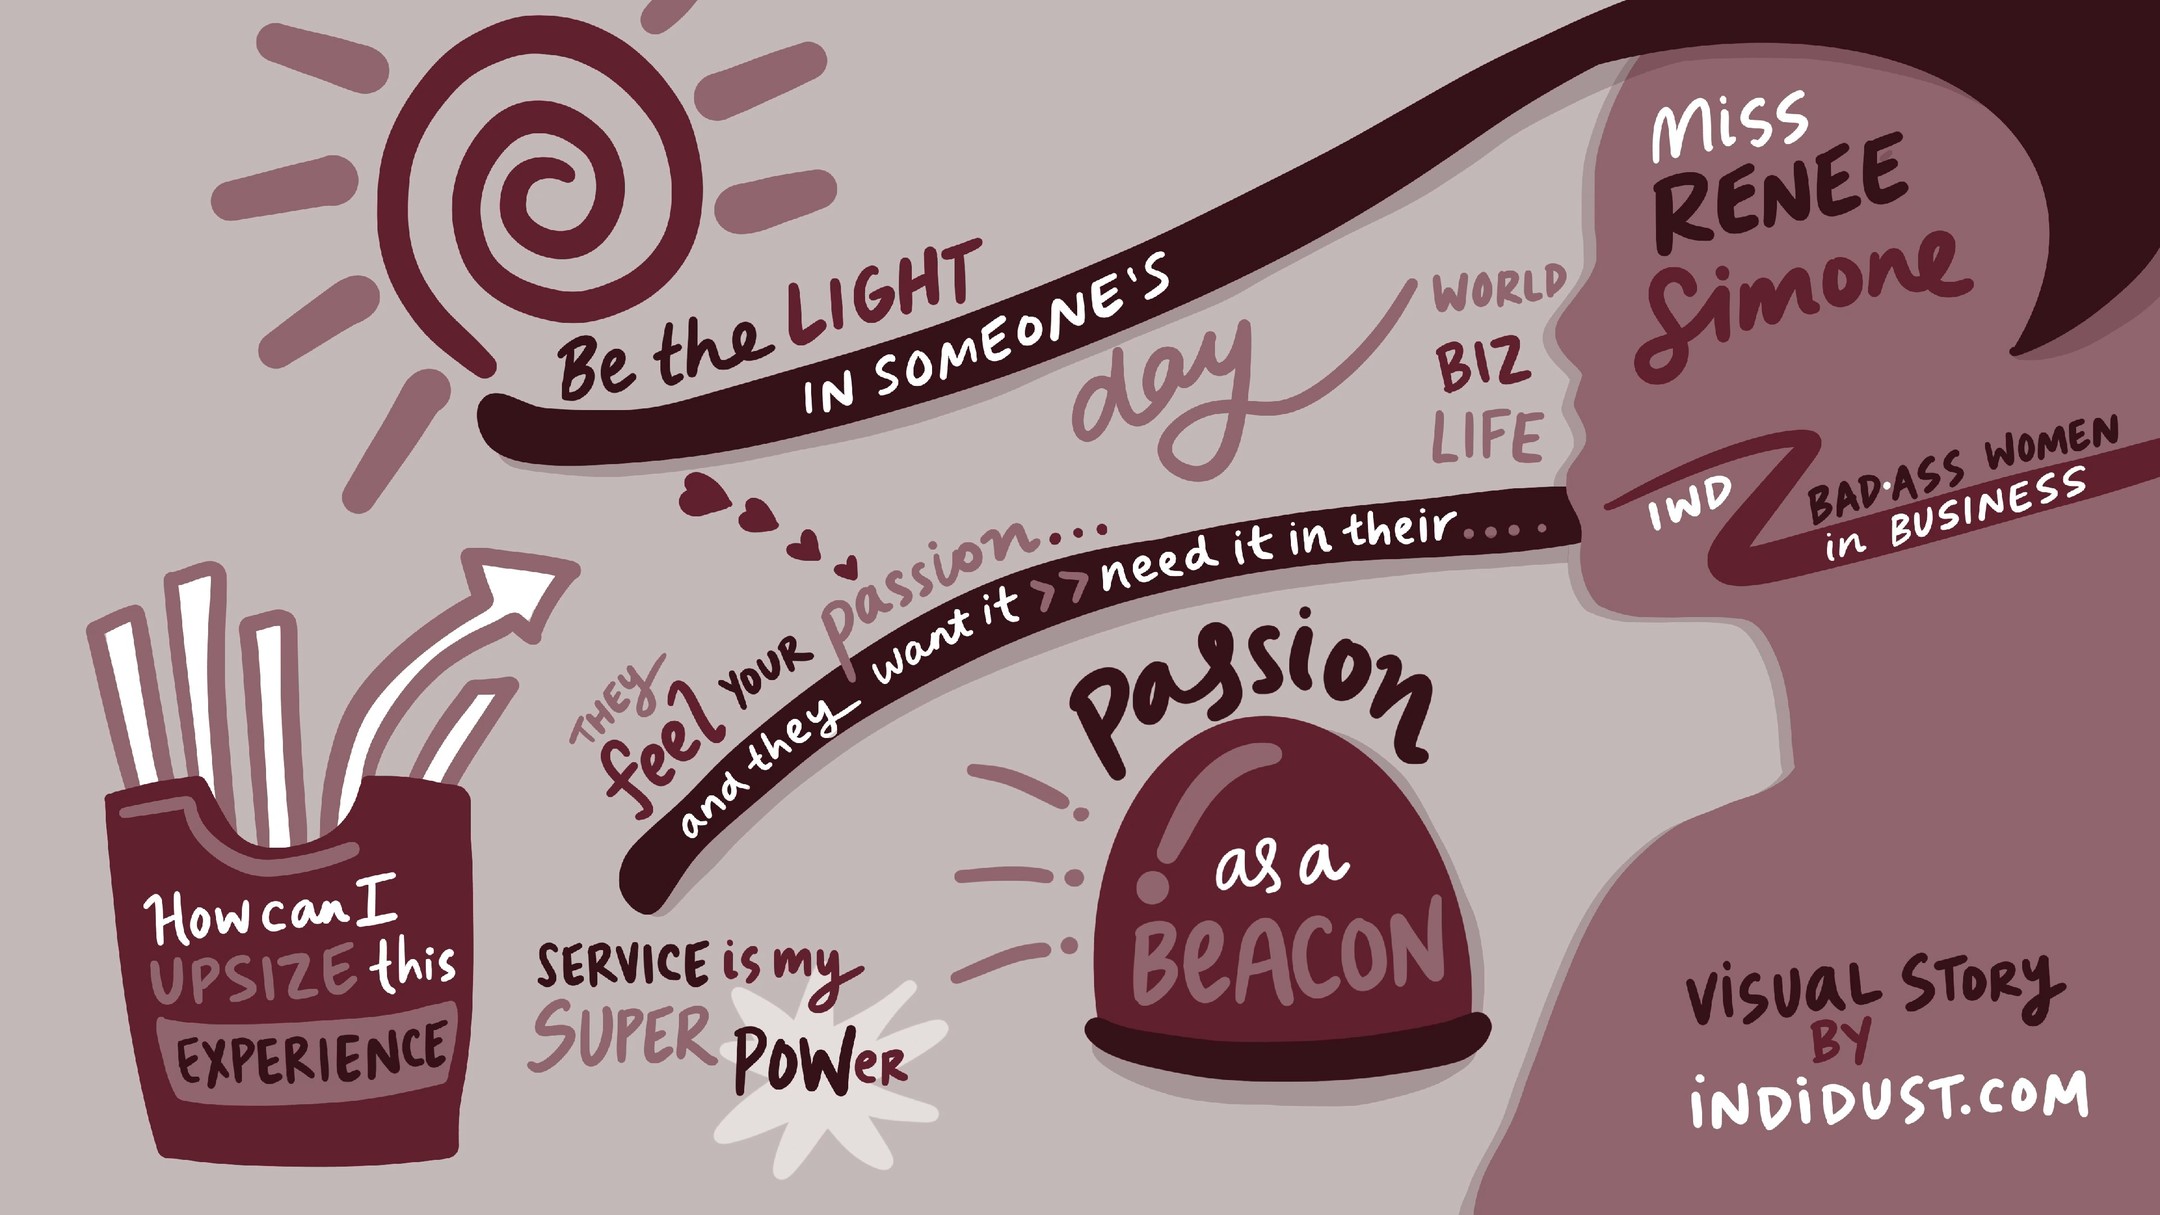 Miss
RENEE
Simone
IWD
BAD·ASS WOMEN
in BUSINESS
Be the LIGHT
IN SOMEONE'S
day
WORLD
BIZ
LIFE
THEY
feel YOUR passion...
and they want it >> need it in their....
Passion
as a
BEACON
How can I
UPSIZE this
EXPERIENCE
SERVICE is my
SUPER POWER
VISUAL STORY
BY
iNDiDUST.COM